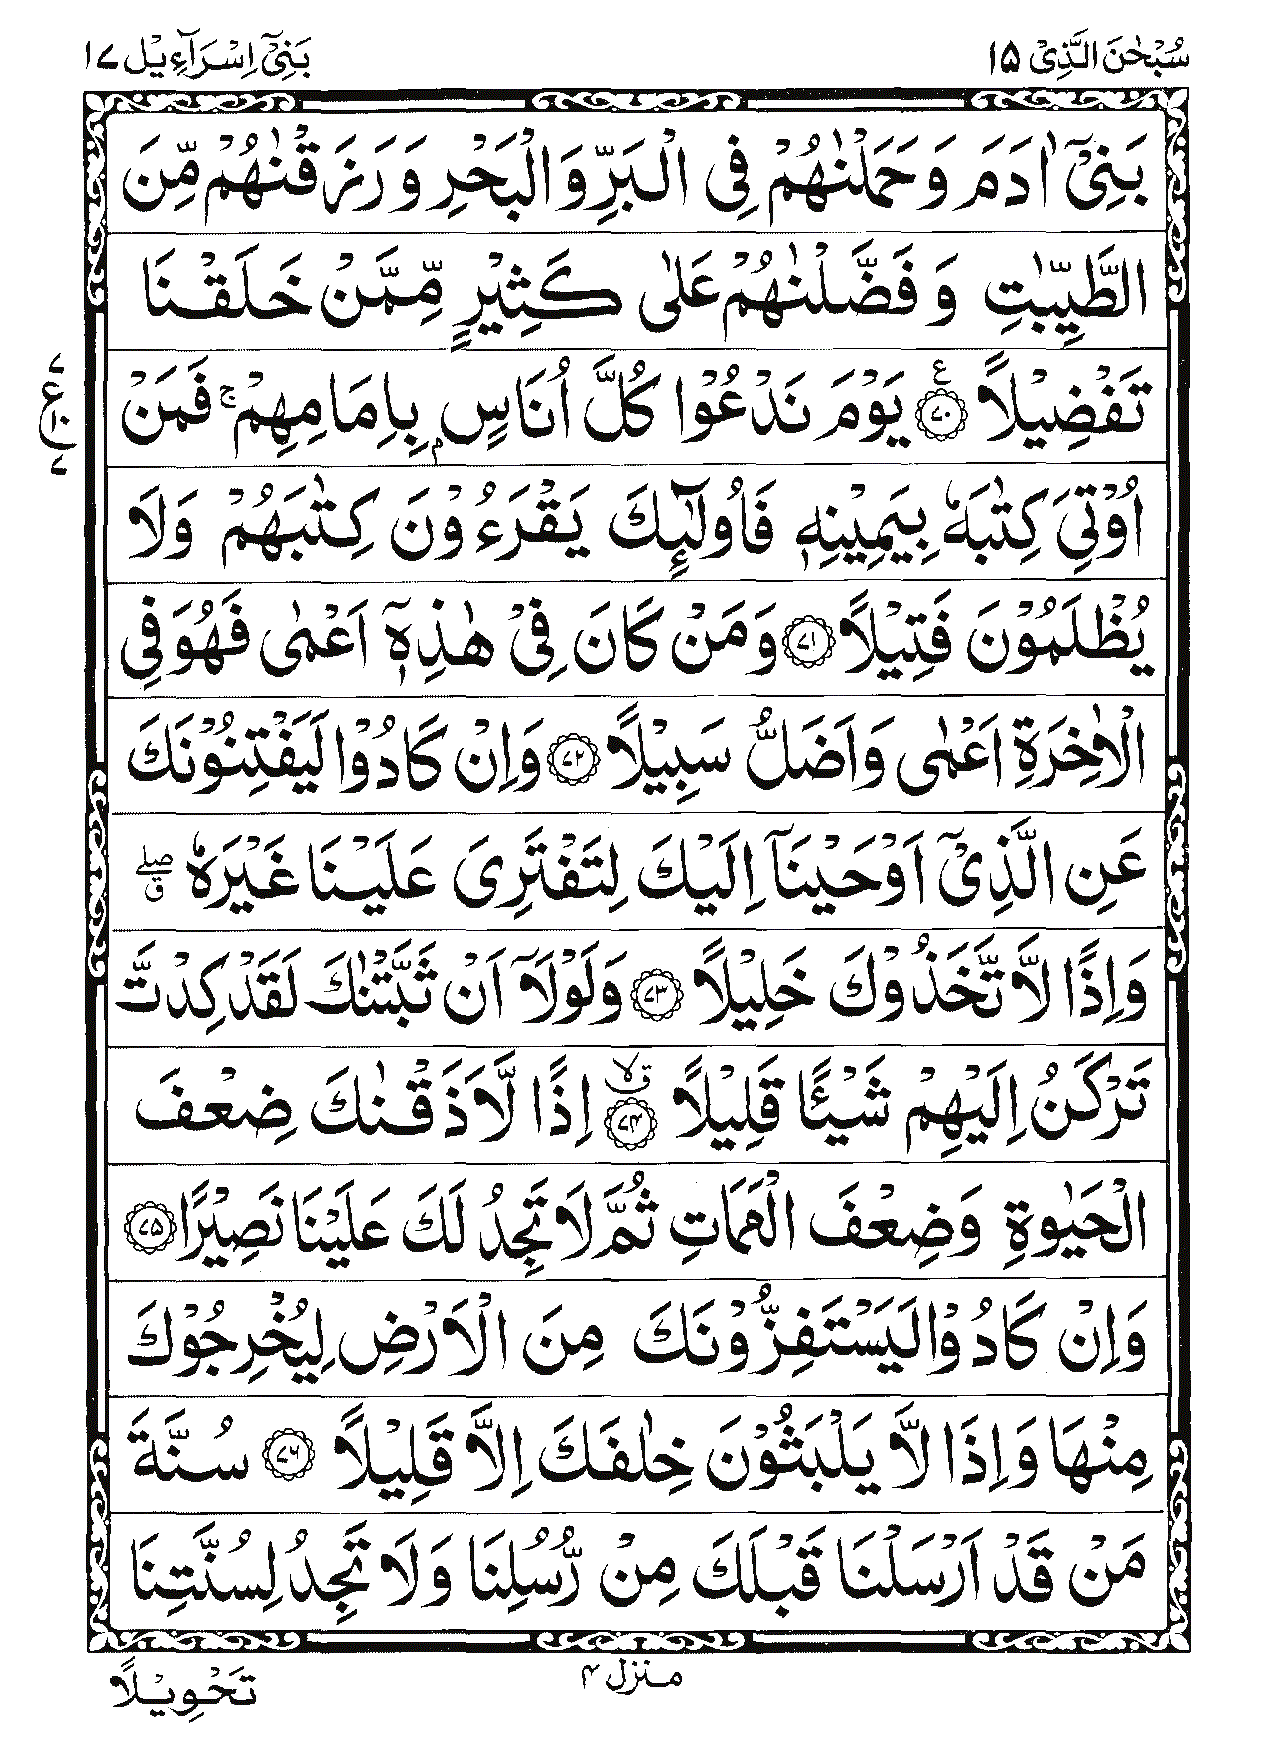 سُبْحٰنَ الَّذِىْۤ ۱۵
بَنِىْۤ اِسْرَآءِيْل ۱۷
بَنِىْۤ اٰدَمَ وَحَمَلْنٰهُمْ فِى الْبَرِّ وَالْبَحْرِ وَرَزَقْنٰهُمْ مِّنَ
الطَّيِّبٰتِ وَفَضَّلْنٰهُمْ عَلٰى كَثِيْرٍ مِّمَّنْ خَلَقْنَا
تَفْضِيْلًا ﴿۷۰﴾ ع يَوْمَ نَدْعُوْا كُلَّ اُنَاسٍۭ بِاِمَامِهِمْ ۚ فَمَنْ
۷
ع
۱۰
۷
اُوْتِىَ كِتٰبَهٗ بِيَمِيْنِهٖ فَاُولٰٓئِكَ يَقْرَءُوْنَ كِتٰبَهُمْ وَلَا
يُظْلَمُوْنَ فَتِيْلًا ﴿۷۱﴾ وَمَنْ كَانَ فِىْ هٰذِهٖۤ اَعْمٰى فَهُوَ فِى
الْاٰخِرَةِ اَعْمٰى وَاَضَلُّ سَبِيْلًا ﴿۷۲﴾ وَاِنْ كَادُوْا لَيَفْتِنُوْنَكَ
عَنِ الَّذِىْۤ اَوْحَيْنَاۤ اِلَيْكَ لِتَفْتَرِىَ عَلَيْنَا غَيْرَهٗ ۖ ق
وَاِذًا لَّاتَّخَذُوْكَ خَلِيْلًا ﴿۷۳﴾ وَلَوْلَاۤ اَنْ ثَبَّتْنٰكَ لَقَدْ كِدْتَّ
تَرْكَنُ اِلَيْهِمْ شَيْـًٔا قَلِيْلًا ﴿۷۴﴾ ق ۙ اِذًا لَّاَذَقْنٰكَ ضِعْفَ
الْحَيٰوةِ وَضِعْفَ الْمَمَاتِ ثُمَّ لَا تَجِدُ لَكَ عَلَيْنَا نَصِيْرًا ﴿۷۵﴾
وَاِنْ كَادُوْا لَيَسْتَفِزُّوْنَكَ مِنَ الْاَرْضِ لِيُخْرِجُوْكَ
مِنْهَا وَاِذًا لَّا يَلْبَثُوْنَ خِلٰفَكَ اِلَّا قَلِيْلًا ﴿۷۶﴾ سُنَّةَ
مَنْ قَدْ اَرْسَلْنَا قَبْلَكَ مِنْ رُّسُلِنَا وَلَا تَجِدُ لِسُنَّتِنَا
منزل ۴
تَحْوِيْلًا